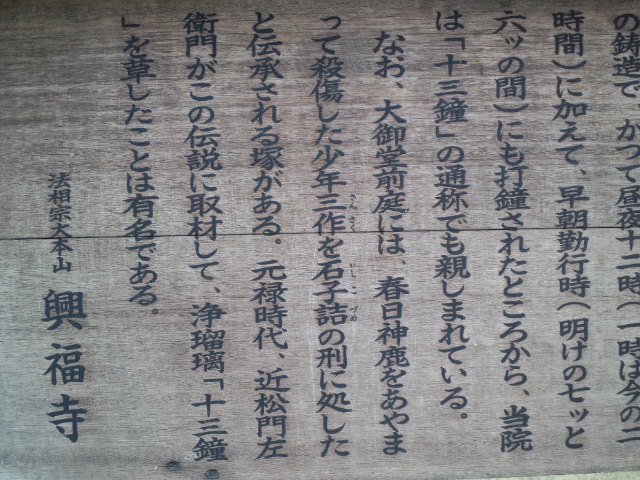 の鋳造で、かつて昼夜十二時(一時は今の二
時間)に加えて、早朝勤行時(明けの七ッと
六ッの間)にも打鐘されたところから、当院
は「十三鐘」の通称でも親しまれている。
なお、大御堂前庭には、春日神鹿をあやま
って殺傷した少年三作を石子詰の刑に処した
さんさく いしこづめ
と伝承される塚がある。元禄時代、近松門左
衛門がこの伝説に取材して、浄瑠璃「十三鐘
」を章したことは有名である。
法相宗大本山 興福寺